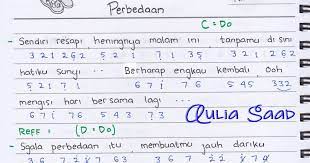 Perbedaan
C = Do
- Sendiri resapi heningnya malam ini tanpamu di sini
3 2 1 2 6 2 5 2 i 7 i 3 5 3 2 1 2 6 2
hatiku sunyi ... Berharap engkau kembali ooh
5 2 i 7 i 6 7 i 7 6 5 4 5 3 3 2
mengisi hari bersama lagi ...
6 7 i 7 6 5 4 3 7 3
Aulia Saad
REFF : (D = Do)
- Sgala perbedaan itu membuatmu jauh dariku